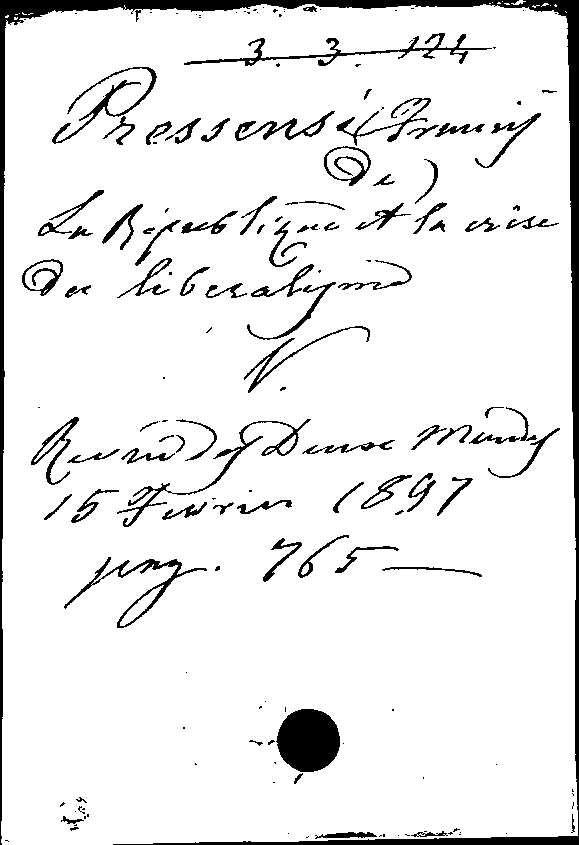 3. 3. 124
Pressensé (Francis
de)
La République et la crise
du libéralisme
V.
Revue des Deux Mondes
15 Fevrier 1897
pag. 765—